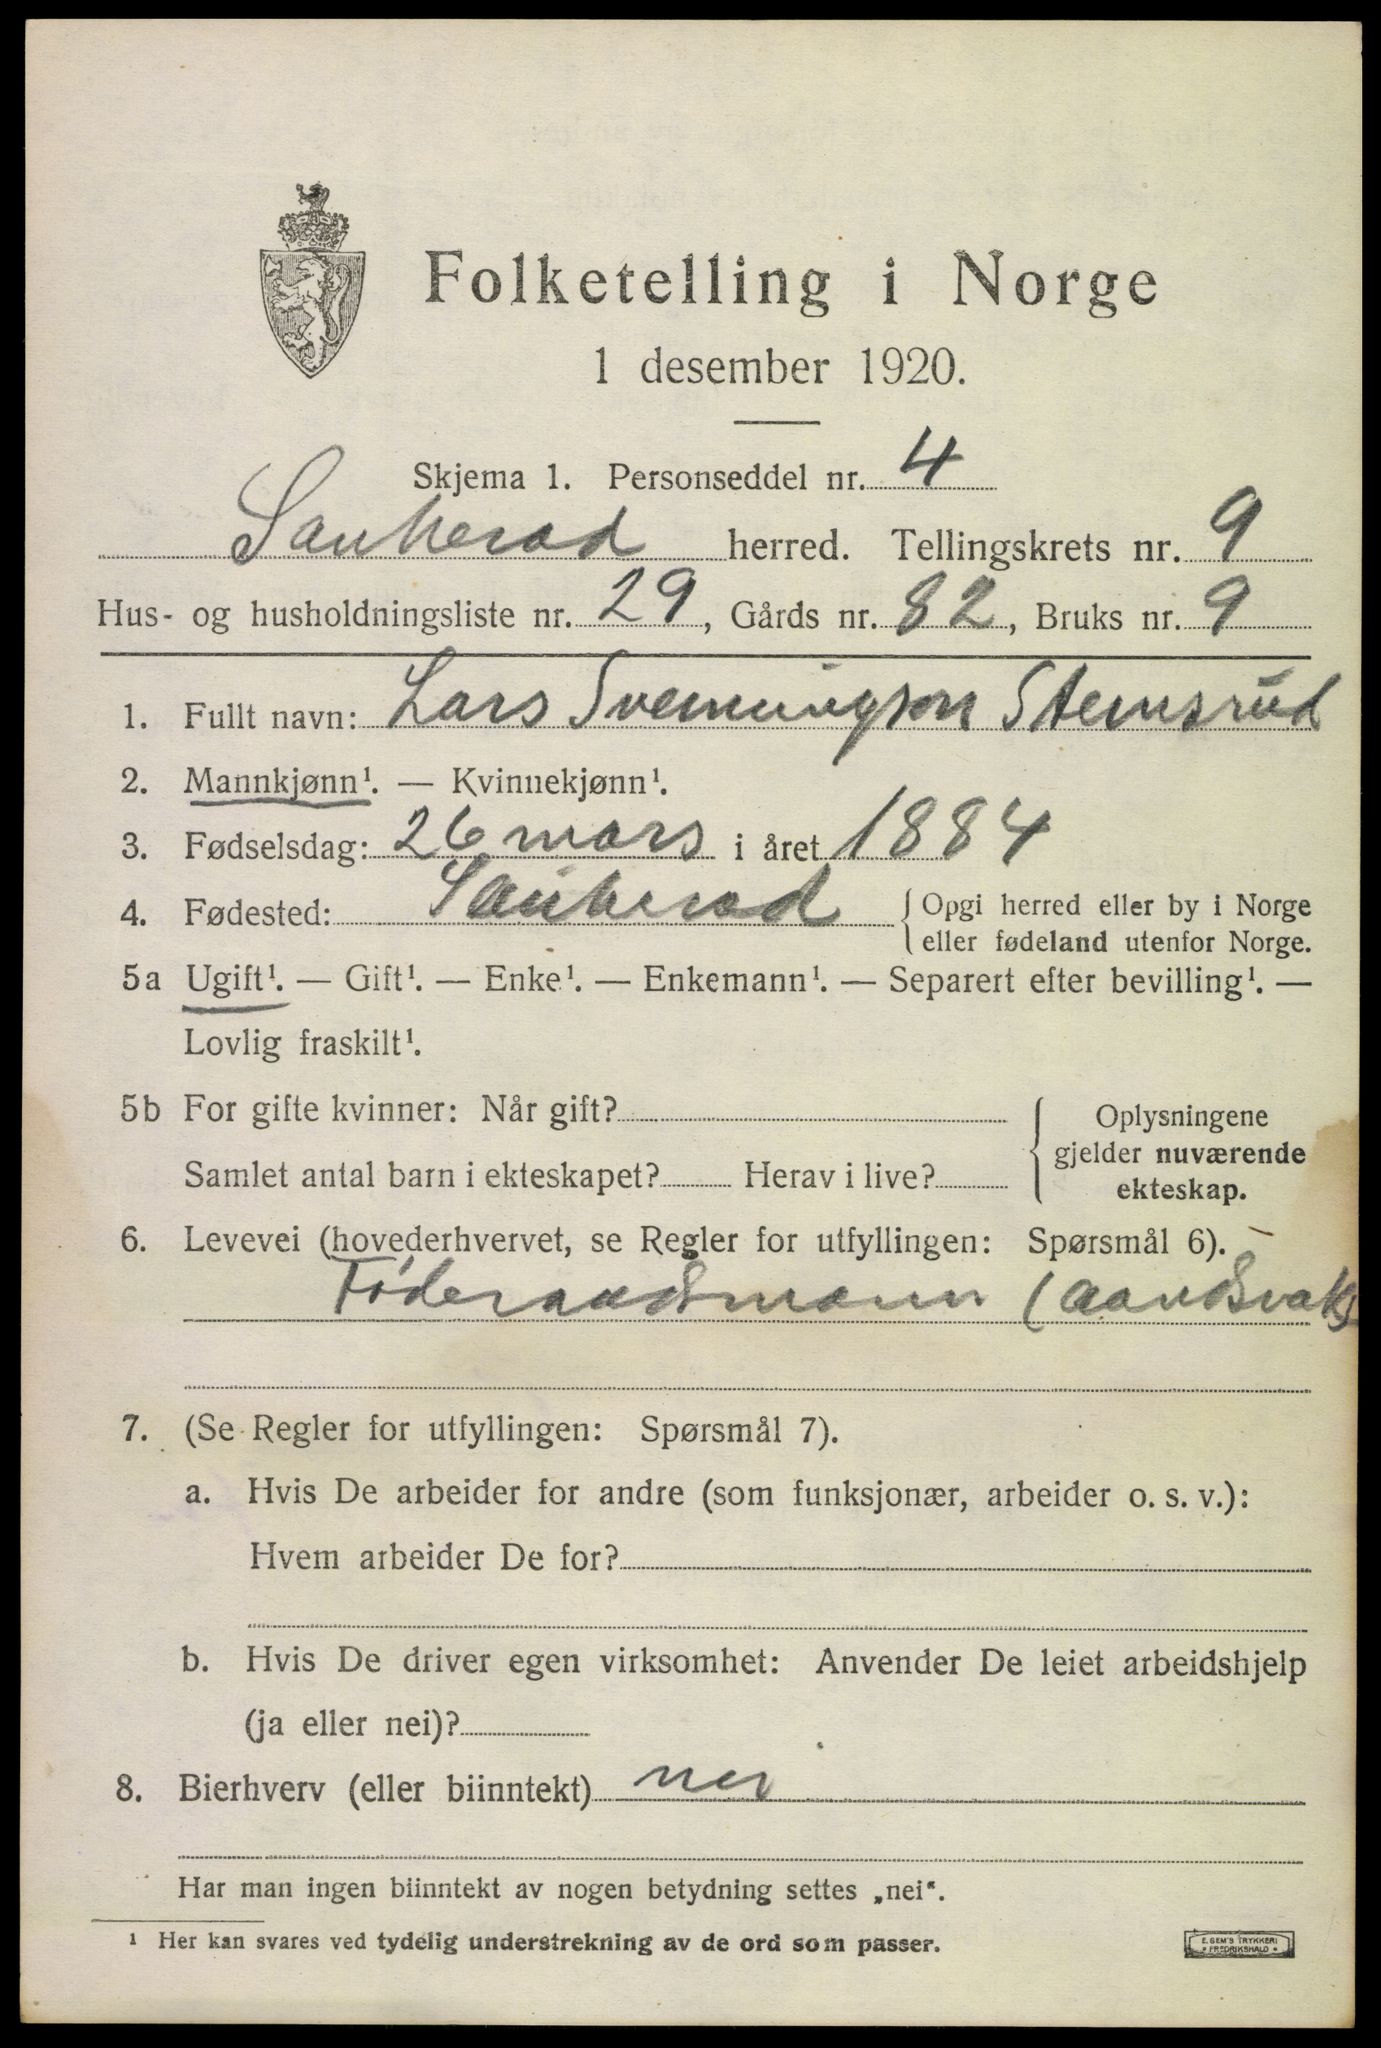 Folketelling i Norge
1 desember 1920.
Skjema 1. Personseddel nr. 4
Sauherad herred. Tellingskrets nr. 9
Hus- og husholdningsliste nr. 29, Gårds nr. 82, Bruks nr. 9
1. Fullt navn: Lars Svenningson Stemsrud
2. Mannkjønn¹. — Kvinnekjønn¹.
3. Fødselsdag: 26 mars i året 1884
4. Fødested: Sauherad {Opgi herred eller by i Norge
eller fødeland utenfor Norge.
5a Ugift¹. — Gift¹. — Enke¹. — Enkemann¹. — Separert efter bevilling¹. —
Lovlig fraskilt¹.
5b For gifte kvinner: Når gift?
Samlet antal barn i ekteskapet? Herav i live?
{Oplysningene
gjelder nuværende
ekteskap.
6. Levevei (hovederhvervet, se Regler for utfyllingen: Spørsmål 6).
Føderaadsmann (aandsvak)
7. (Se Regler for utfyllingen: Spørsmål 7).
a. Hvis De arbeider for andre (som funksjonær, arbeider o. s. v.):
Hvem arbeider De for?
b. Hvis De driver egen virksomhet: Anvender De leiet arbeidshjelp
(ja eller nei)?
8. Bierhverv (eller biinntekt) nei
Har man ingen biinntekt av nogen betydning settes „nei“.
¹ Her kan svares ved tydelig understrekning av de ord som passer.
E. SEM'S TRYKKERI
• FREDRIKSHALD •